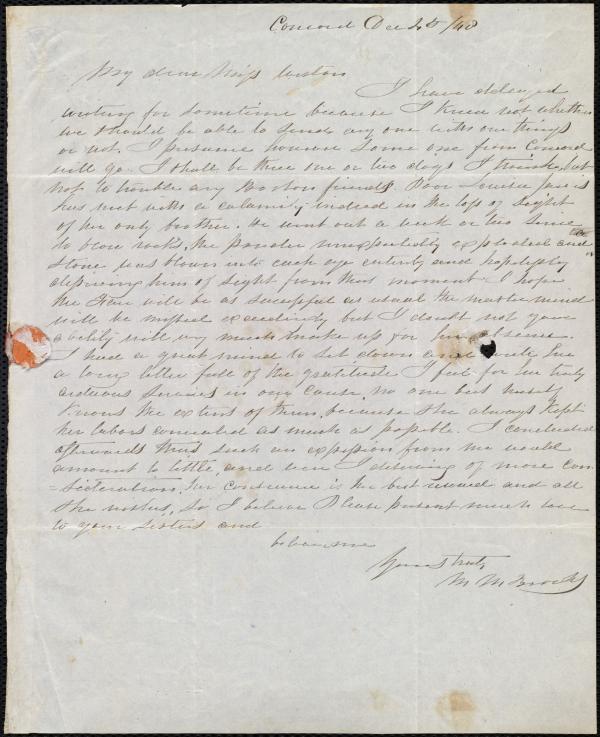 Concord Dec 4th /48
My dear Miss Weston
I have delayed
writing for sometime because I knew not whether
we should be able to send any one with our things
or not. I presume however some one from Concord
will go. I shall be there one or two days I think, but
not to trouble any Boston friends. Poor Louisa
has met with a calamity indeed in the loss of sight
of her only brother. He went out a week or two since
to blow rocks, the powder unexpectedly exploded and
stone was blown into each eye entirely and hopelessly
depriving him of sight from that moment. I hope
the Fair will be as successful as usual the master mind
will be missed exceedingly but I doubt not your
ability will very much make up for her absence.
I had a great mind to sit down and write her
a long letter full of the gratitude I feel for her truly
arduous services in our cause, no one but herself
knows the extent of them, because she always kept
her labors concealed as much as possible. I concluded
afterwards that such an expression from me would
amount to little, and were I deserving of more con
=sideration, her conscience is her best reward and all
she wishes, so I believe Please present much love
to your sisters and
believe me
Yours truly
M M Brooks